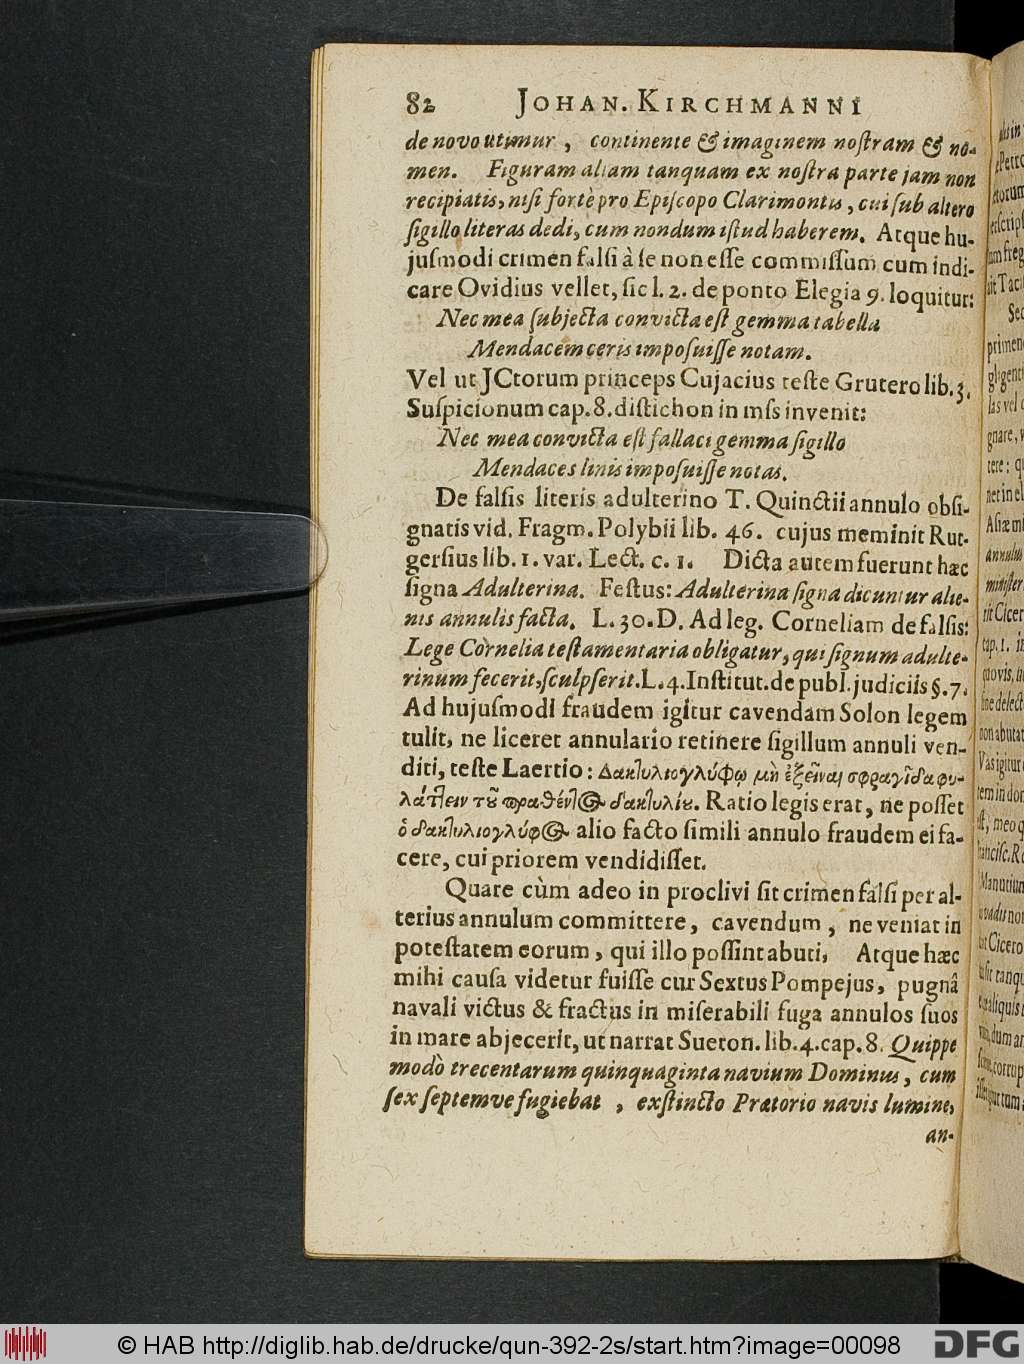 82 JOHAN. KIRCHMANNI
de novo utimur, continente & imaginem noſtram & no-
men. Figuram aliam tanquam ex noſtra parte jam non
recipiatis, niſi fortè pro Epiſcopo Clarimontis, cui ſub altero
ſigillo literas dedi, cum nondum iſtud haberem. Atque hu-
juſmodi crimen falſi à ſe non eſſe commiſſum cum indi-
care Ovidius vellet, ſic l. 2. de ponto Elegia 9. loquitur:
Nec mea ſubjecta convicta eſt gemma tabella
Mendacem ceris impoſuiſſe notam.
Vel ut JCtorum princeps Cujacius teſte Grutero lib. 3.
Suſpicionum cap. 8. diſtichon in mſs invenit:
Nec mea convicta eſt fallaci gemma ſigillo
Mendaces linis impoſuiſſe notas.
De falſis literis adulterino T. Quinctii annulo obſi-
gnatis vid. Fragm. Polybii lib. 46. cujus meminit Rut-
gerſius lib. 1. var. Lect. c. 1. Dicta autem fuerunt hæc
ſigna Adulterina. Feſtus: Adulterina ſigna dicuntur alie-
nis annulis facta. L. 30. D. Ad leg. Corneliam de falſis:
Lege Cornelia teſtamentaria obligatur, qui ſignum adulte-
rinum fecerit, ſculpſerit. L. 4. Inſtitut. de publ. judiciis §. 7.
Ad hujuſmodi fraudem igitur cavendam Solon legem
tulit, ne liceret annulario retinere ſigillum annuli ven-
diti, teſte Laertio: Δακτυλιογλύφῳ μὴ ἐξεῖναι σφραγῖδα φυ-
λάττειν τȣ͂ πραθέντ@ δακτυλίȣ. Ratio legis erat, ne poſſet
ὁ δακτυλιογλύφ@ alio facto ſimili annulo fraudem ei fa-
cere, cui priorem vendidiſſet.
Quare cùm adeo in proclivi ſit crimen falſi per al-
terius annulum committere, cavendum, ne veniat in
poteſtatem eorum, qui illo poſſint abuti, Atque hæc
mihi cauſa videtur fuiſſe cur Sextus Pompejus, pugnâ
navali victus & fractus in miſerabili fuga annulos ſuos
in mare abjecerit, ut narrat Sueton. lib. 4. cap. 8. Quippe
modò trecentarum quinquaginta navium Dominus, cum
ſex ſeptemve fugiebat, exſtincto Prætorio navis lumine,
an-
© HAB http://diglib.hab.de/drucke/qun-392-2s/start.htm?image=00098
DFG